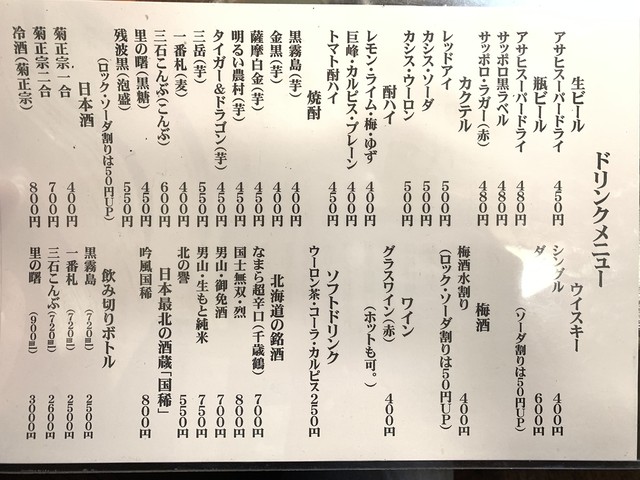 ドリンクメニュー
生ビール
アサヒスーパードライ 450円
瓶ビール
アサヒスーパードライ 480円
サッポロ黒ラベル 480円
サッポロ・ラガー(赤) 480円
カクテル
レッドアイ 500円
カシス・ソーダ 500円
カシス・ウーロン 500円
酎ハイ
レモン・ライム・梅・ゆず 400円
巨峰・カルピス・プレーン 400円
トマト酎ハイ 450円
焼酎
黒霧島(芋) 400円
金黒(芋) 400円
薩摩白金(芋) 450円
明るい農村(芋) 450円
タイガー&ドラゴン(芋) 450円
三岳(芋) 550円
一番札(麦) 400円
三石こんぶ(こんぶ) 600円
里の曙(黒糖) 450円
残波黒(泡盛) 550円
(ロック・ソーダ割りは50円UP)
日本酒
菊正宗一合 400円
菊正宗二合 700円
冷酒(菊正宗) 800円
ウイスキー
シングル 400円
ダ 600円
(ソーダ割りは50円UP)
梅酒
梅酒水割り 400円
(ロック・ソーダ割りは50円UP)
ワイン
グラスワイン(赤) 400円
(ホットも可。)
ソフトドリンク
ウーロン茶・コーラ・カルピス250円
北海道の銘酒
なまら超辛口(千歳鶴) 700円
国士無双・烈 800円
男山・御免酒 700円
男山・生もと純米 750円
北の誉 550円
日本最北の酒蔵「国稀」
吟風国稀 800円
飲み切りボトル
黒霧島 (720㎖) 2500円
一番札 (720㎖) 2500円
三石こんぶ(720㎖) 2600円
里の曙 (900㎖) 3000円